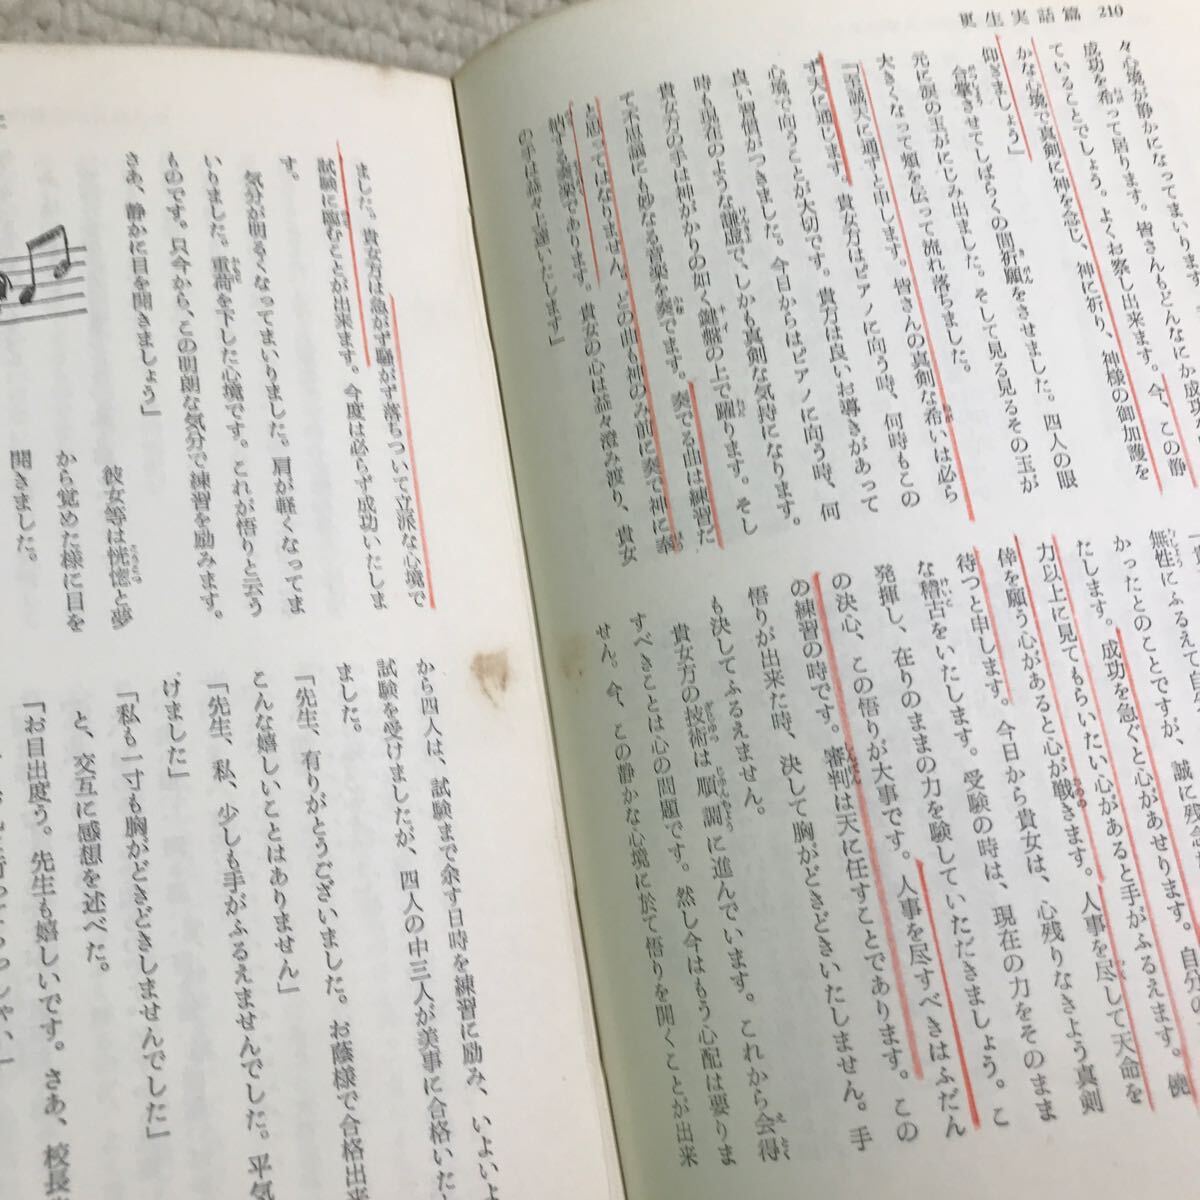 更生実話篇 210
々心境が静かになってまいります
成功を希って居ります。皆さんもどんなにか成功
ていることでしょう。よくお察し出来ます。今、この静
かな心境で真剣に神を念じ、神に祈り、神様の御加護を
仰ぎましょう」
合掌させてしばらくの間祈願をさせました。四人の眼
元に涙の玉がにじみ出ました。そして見る見るその玉が
大きくなって頰を伝って流れ落ちました。
「至誠天に通ずと申します。皆さんの真剣な希いは必ら
ず天に通じます。貴女方はピアノに向う時、何時もこの
心境で向うことが大切です。貴方は良いお導きがあって
良い習慣がつきました。今日からはピアノに向う時、何
時も現在のような謙虚で、しかも真剣な気持になります。
貴女方の手は神がかりの如く鍵盤の上で躍ります。そし
て不思議にも妙なる音楽を奏でます。奏でる曲は練習だ
と思ってはなりません。どの曲も神のみ前に奏で神に奉
納する奏楽であります。貴女の心は益々澄み渡り、貴女
の手は益々上達いたします」
無性にふるえて自
かったとのことですが、誠に残念
たします。成功を急ぐと心があせります。自分の
力以上に見てもらいたい心があると手がふるえます。僥
倖を願う心があると心が戦きます。人事を尽して天命を
待つと申します。今日から貴女は、心残りなきよう真剣
な稽古をいたします。受験の時は、現在の力をそのまま
発揮し、在りのままの力を験していただきましょう。こ
の決心、この悟りが大事です。人事を尽すべきはふだん
の練習の時です。審判は天に任すことであります。この
悟りが出来た時、決して胸がどきどきいたしません。手
も決してふるえません。
貴女方の技術は順調に進んでいます。これから会得
すべきことは心の問題です。然し今はもう心配は要りま
せん。今、この静かな心境に於て悟りを開くことが出来
ました。貴女方は急がず騒がず落ちついて立派な心境で
試験に臨むことが出来ます。今度は必らず成功いたしま
す。
気分が明るくなってまいりました。肩が軽くなってま
いりました。重荷を下した心境です。これが悟りと云う
ものです。只今から、この明朗な気分で練習を励みます。
さあ、静かに目を開きましょう」
彼女等は恍惚と夢
から覚めた様に目を
開きました。
から四人は、試験まで余す日時を練習に励み、いよいよ
試験を受けましたが、四人の中三人が美事に合格いた
ました。
「先生、有りがとうございました。お蔭様で合格出来
こんな嬉しいことはありません」
「先生、私、少しも手がふるえませんでした。平気
けました」
「私も一寸も胸がどきどきしませんでした」
と、交互に感想を述べた。
「お目出度う。先生も嬉しいです。さあ、校長